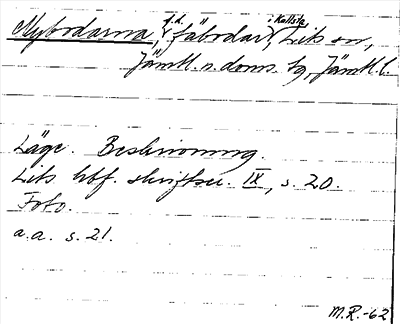 Nybodarna, f.d. fäbodar, i Kallsta, Lits sn,
Jämtl. n. doms. tg, Jämtl. l.
Läge. Beskrivning.
Lits hbf. skriftser. IX, s. 20.
Foto.
a.a. s. 21.
M.R.-62